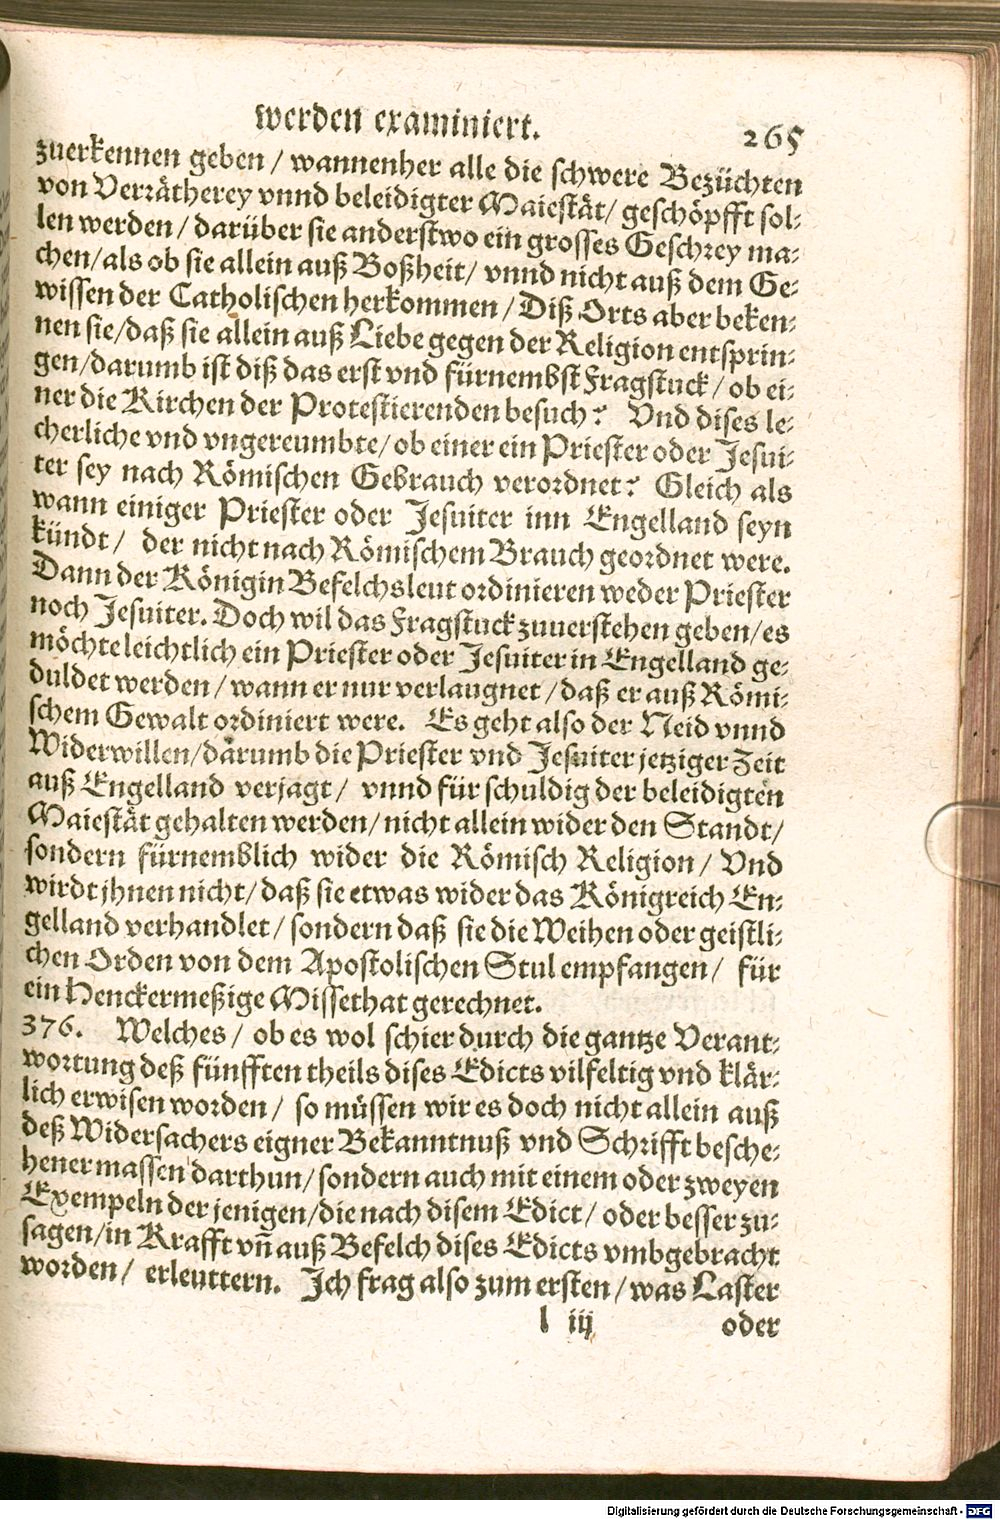 werden examiniert. 265
zuerkennen geben / wannenher alle die schwere Bezüchten
von Verrätherey vnnd beleidigter Maiestät / geschöpfft sol-
len werden / darüber sie anderstwo ein grosses Geschrey ma-
chen / als ob sie allein auß Boßheit / vnnd nicht auß dem Ge-
wissen der Catholischen herkommen / Diß Orts aber beken-
nen sie / daß sie allein auß Liebe gegen der Religion entsprin-
gen / darumb ist diß das erst vnd fürnembst Fragstuck / ob ei-
ner die Kirchen der Protestierenden besuch? Vnd dises le-
cherliche vnd vngereumbte / ob einer ein Priester oder Jesui-
ter sey nach Römischen Gebrauch verordnet? Gleich als
wann einiger Priester oder Jesuiter inn Engelland seyn
kündt / der nicht nach Römischem Brauch geordnet were.
Dann der Königin Befelchsleut ordinieren weder Priester
noch Jesuiter. Doch wil das Fragstuck zuuerstehen geben / es
möchte leichtlich ein Priester oder Jesuiter in Engelland ge-
duldet werden / wann er nur verlaugnet / daß er auß Römi-
schem Gewalt ordiniert were. Es geht also der Neid vnnd
Widerwillen / darumb die Priester vnd Jesuiter jetziger Zeit
auß Engelland verjagt / vnnd für schuldig der beleidigten
Maiestät gehalten werden / nicht allein wider den Standt /
sondern fürnemblich wider die Römisch Religion / Vnd
wirdt jhnen nicht / daß sie etwas wider das Königreich En-
gelland verhandlet / sondern daß sie die Weihen oder geistli-
chen Orden von dem Apostolischen Stul empfangen / für
ein Henckermeßige Missethat gerechnet.
376. Welches / ob es wol schier durch die gantze Verant-
wortung deß fünfften theils dises Edicts vilfeltig vnd klär-
lich erwisen worden / so müssen wir es doch nicht allein auß
deß Widersachers eigner Bekanntnuß vnd Schrifft besche-
hener massen darthun / sondern auch mit einem oder zweyen
Exempeln der jenigen / die nach disem Edict / oder besser zu-
sagen / in Krafft vñ auß Befelch dises Edicts vmbgebracht
worden / erleuttern. Ich frag also zum ersten / was Laster
l iij oder
Digitalisierung gefördert durch die Deutsche Forschungsgemeinschaft - DFG